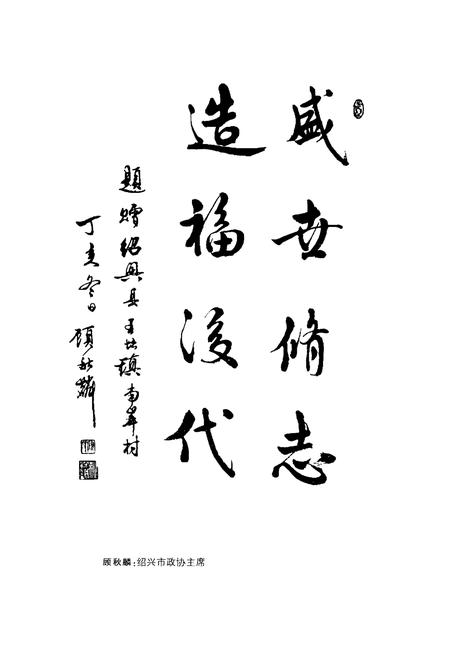 盛世脩志
造福後代
題贈紹興县王坛鎮南岸村
丁亥冬日 顾秋麟
顾秋麟:绍兴市政协主席